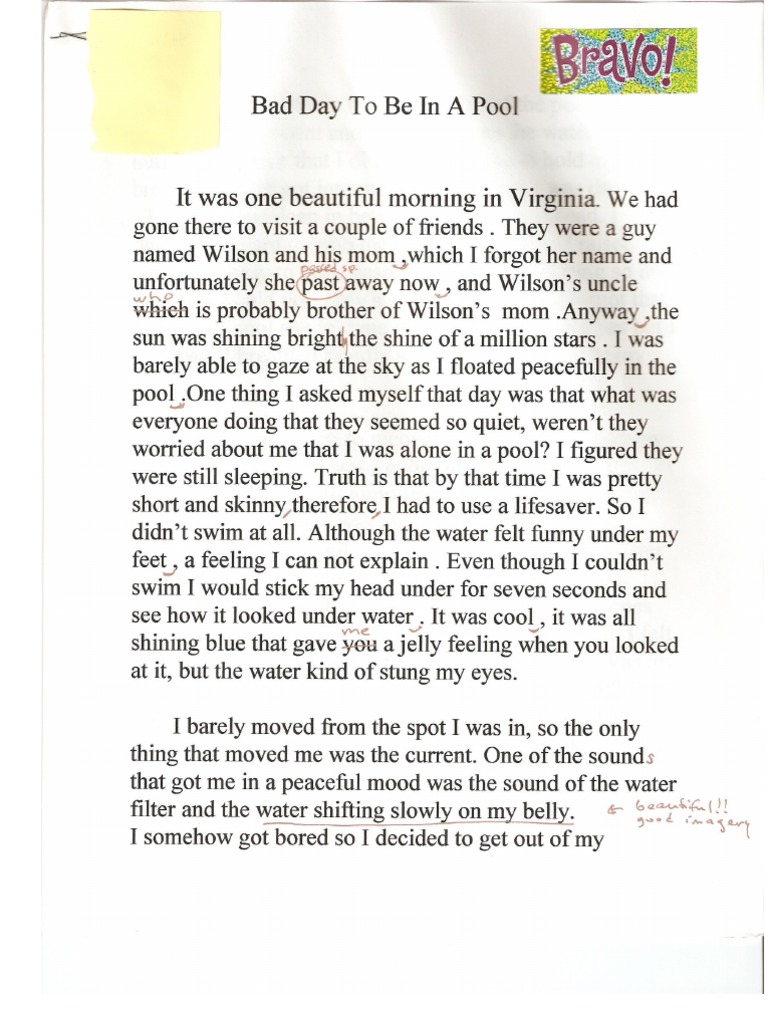 Bravo!
Bad Day To Be In A Pool
It was one beautiful morning in Virginia. We had
gone there to visit a couple of friends . They were a guy
named Wilson and his mom ,which I forgot her name and
passed sp.
unfortunately she past away now , and Wilson's uncle
who
which is probably brother of Wilson's mom .Anyway ,the
sun was shining bright the shine of a million stars . I was
barely able to gaze at the sky as I floated peacefully in the
pool .One thing I asked myself that day was that what was
everyone doing that they seemed so quiet, weren't they
worried about me that I was alone in a pool? I figured they
were still sleeping. Truth is that by that time I was pretty
short and skinny,therefore,I had to use a lifesaver. So I
didn't swim at all. Although the water felt funny under my
feet , a feeling I can not explain . Even though I couldn't
swim I would stick my head under for seven seconds and
see how it looked under water . It was cool , it was all
me
shining blue that gave you a jelly feeling when you looked
at it, but the water kind of stung my eyes.
I barely moved from the spot I was in, so the only
thing that moved me was the current. One of the sounds
that got me in a peaceful mood was the sound of the water
filter and the water shifting slowly on my belly. ← beautiful!!
good imagery
I somehow got bored so I decided to get out of my